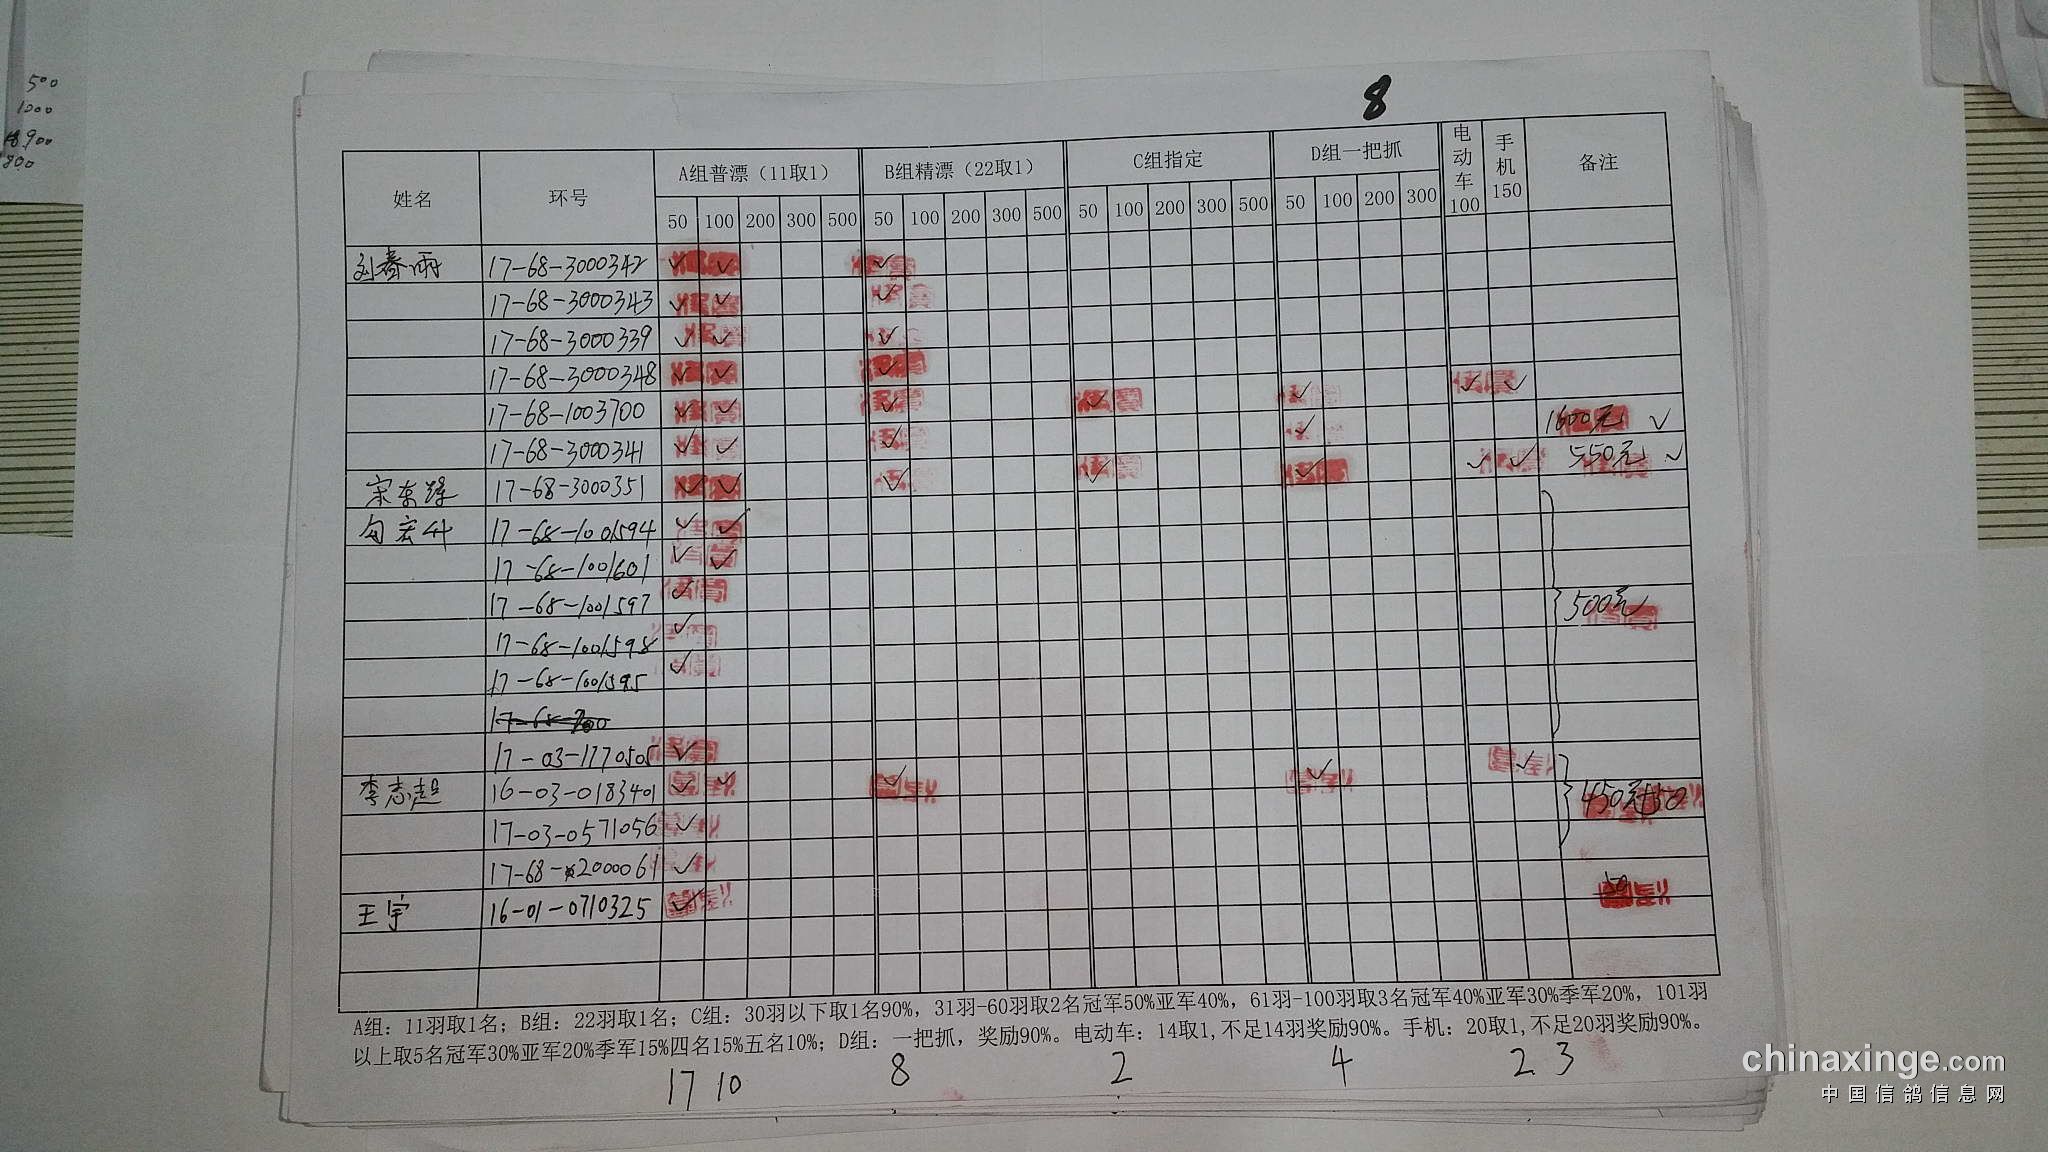 500
1000
18900
800
8
姓名 环号 A组普漂（11取1） B组精漂（22取1） C组指定 D组一把抓 电动车100 手机150 备注
50 100 200 300 500 50 100 200 300 500 50 100 200 300 500 50 100 200 300
刘春雨 17-68-3000342 ✓ ✓ ✓
17-68-3000343 ✓ ✓ ✓
17-68-3000339 ✓ ✓ ✓
17-68-3000348 ✓ ✓ ✓
17-68-1003700 ✓ ✓ ✓ ✓ ✓ ✓ ✓
17-68-3000341 ✓ ✓ ✓ ✓ 1600元 ✓
宋东 17-68-3000351 ✓ ✓ ✓ ✓ ✓ ✓ ✓ 550元 ✓
勾宏升 17-68-1001594 ✓ ✓
17-68-1001601 ✓ ✓
17-68-1001597 ✓
17-68-1001598 ✓ 500元
17-68-1001595 ✓
17-68-200
17-03-1770505 ✓
李志超 16-03-0183401 ✓ ✓ ✓ ✓ ✓ 450元+150
17-03-0571056 ✓
17-68-2000061 ✓
王宇 16-01-0710325 ✓ 50
A组：11羽取1名；B组：22羽取1名；C组：30羽以下取1名90%，31羽-60羽取2名冠军50%亚军40%，61羽-100羽取3名冠军40%亚军30%季军20%，101羽
以上取5名冠军30%亚军20%季军15%四名15%五名10%；D组：一把抓，奖励90%。电动车：14取1,不足14羽奖励90%。手机：20取1,不足20羽奖励90%。
17 10 8 2 4 2 3
chinaxinge.com
中国信鸽信息网